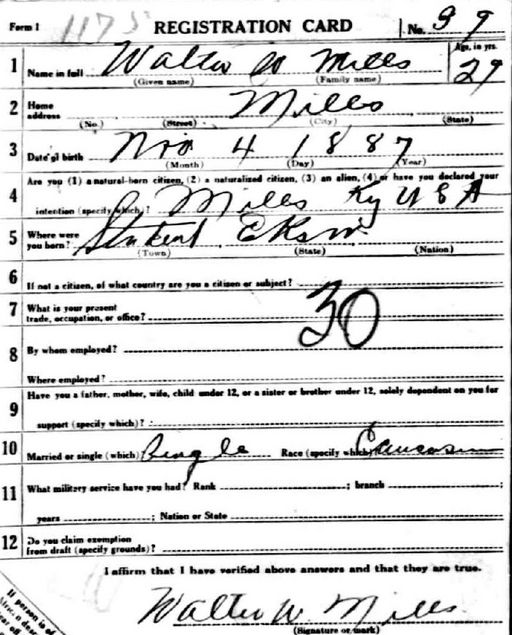 Form 1 1175 REGISTRATION CARD No. 39
1 Name in full Walter W Mills Age, in yrs. 29
(Given name) (Family name)
2 Home address Mills
(No.) (Street) (City) (State)
3 Date of birth Nov 4 1887
(Month) (Day) (Year)
4 Are you (1) a natural-born citizen, (2) a naturalized citizen, (3) an alien, (4) or have you declared your
intention (specify which)? Mills Ky U S A
5 Where were you born? Student
(Town) (State) (Nation)
6 If not a citizen, of what country are you a citizen or subject?
7 What is your present trade, occupation, or office? 30
8 By whom employed?
Where employed?
9 Have you a father, mother, wife, child under 12, or a sister or brother under 12, solely dependent on you for
support (specify which)?
10 Married or single (which) Single Race (specify which) Caucasian
11 What military service have you had? Rank ; branch ;
years ; Nation or State
12 Do you claim exemption from draft (specify grounds)?
I affirm that I have verified above answers and that they are true.
Walter W Mills
(Signature or mark)
If person is of